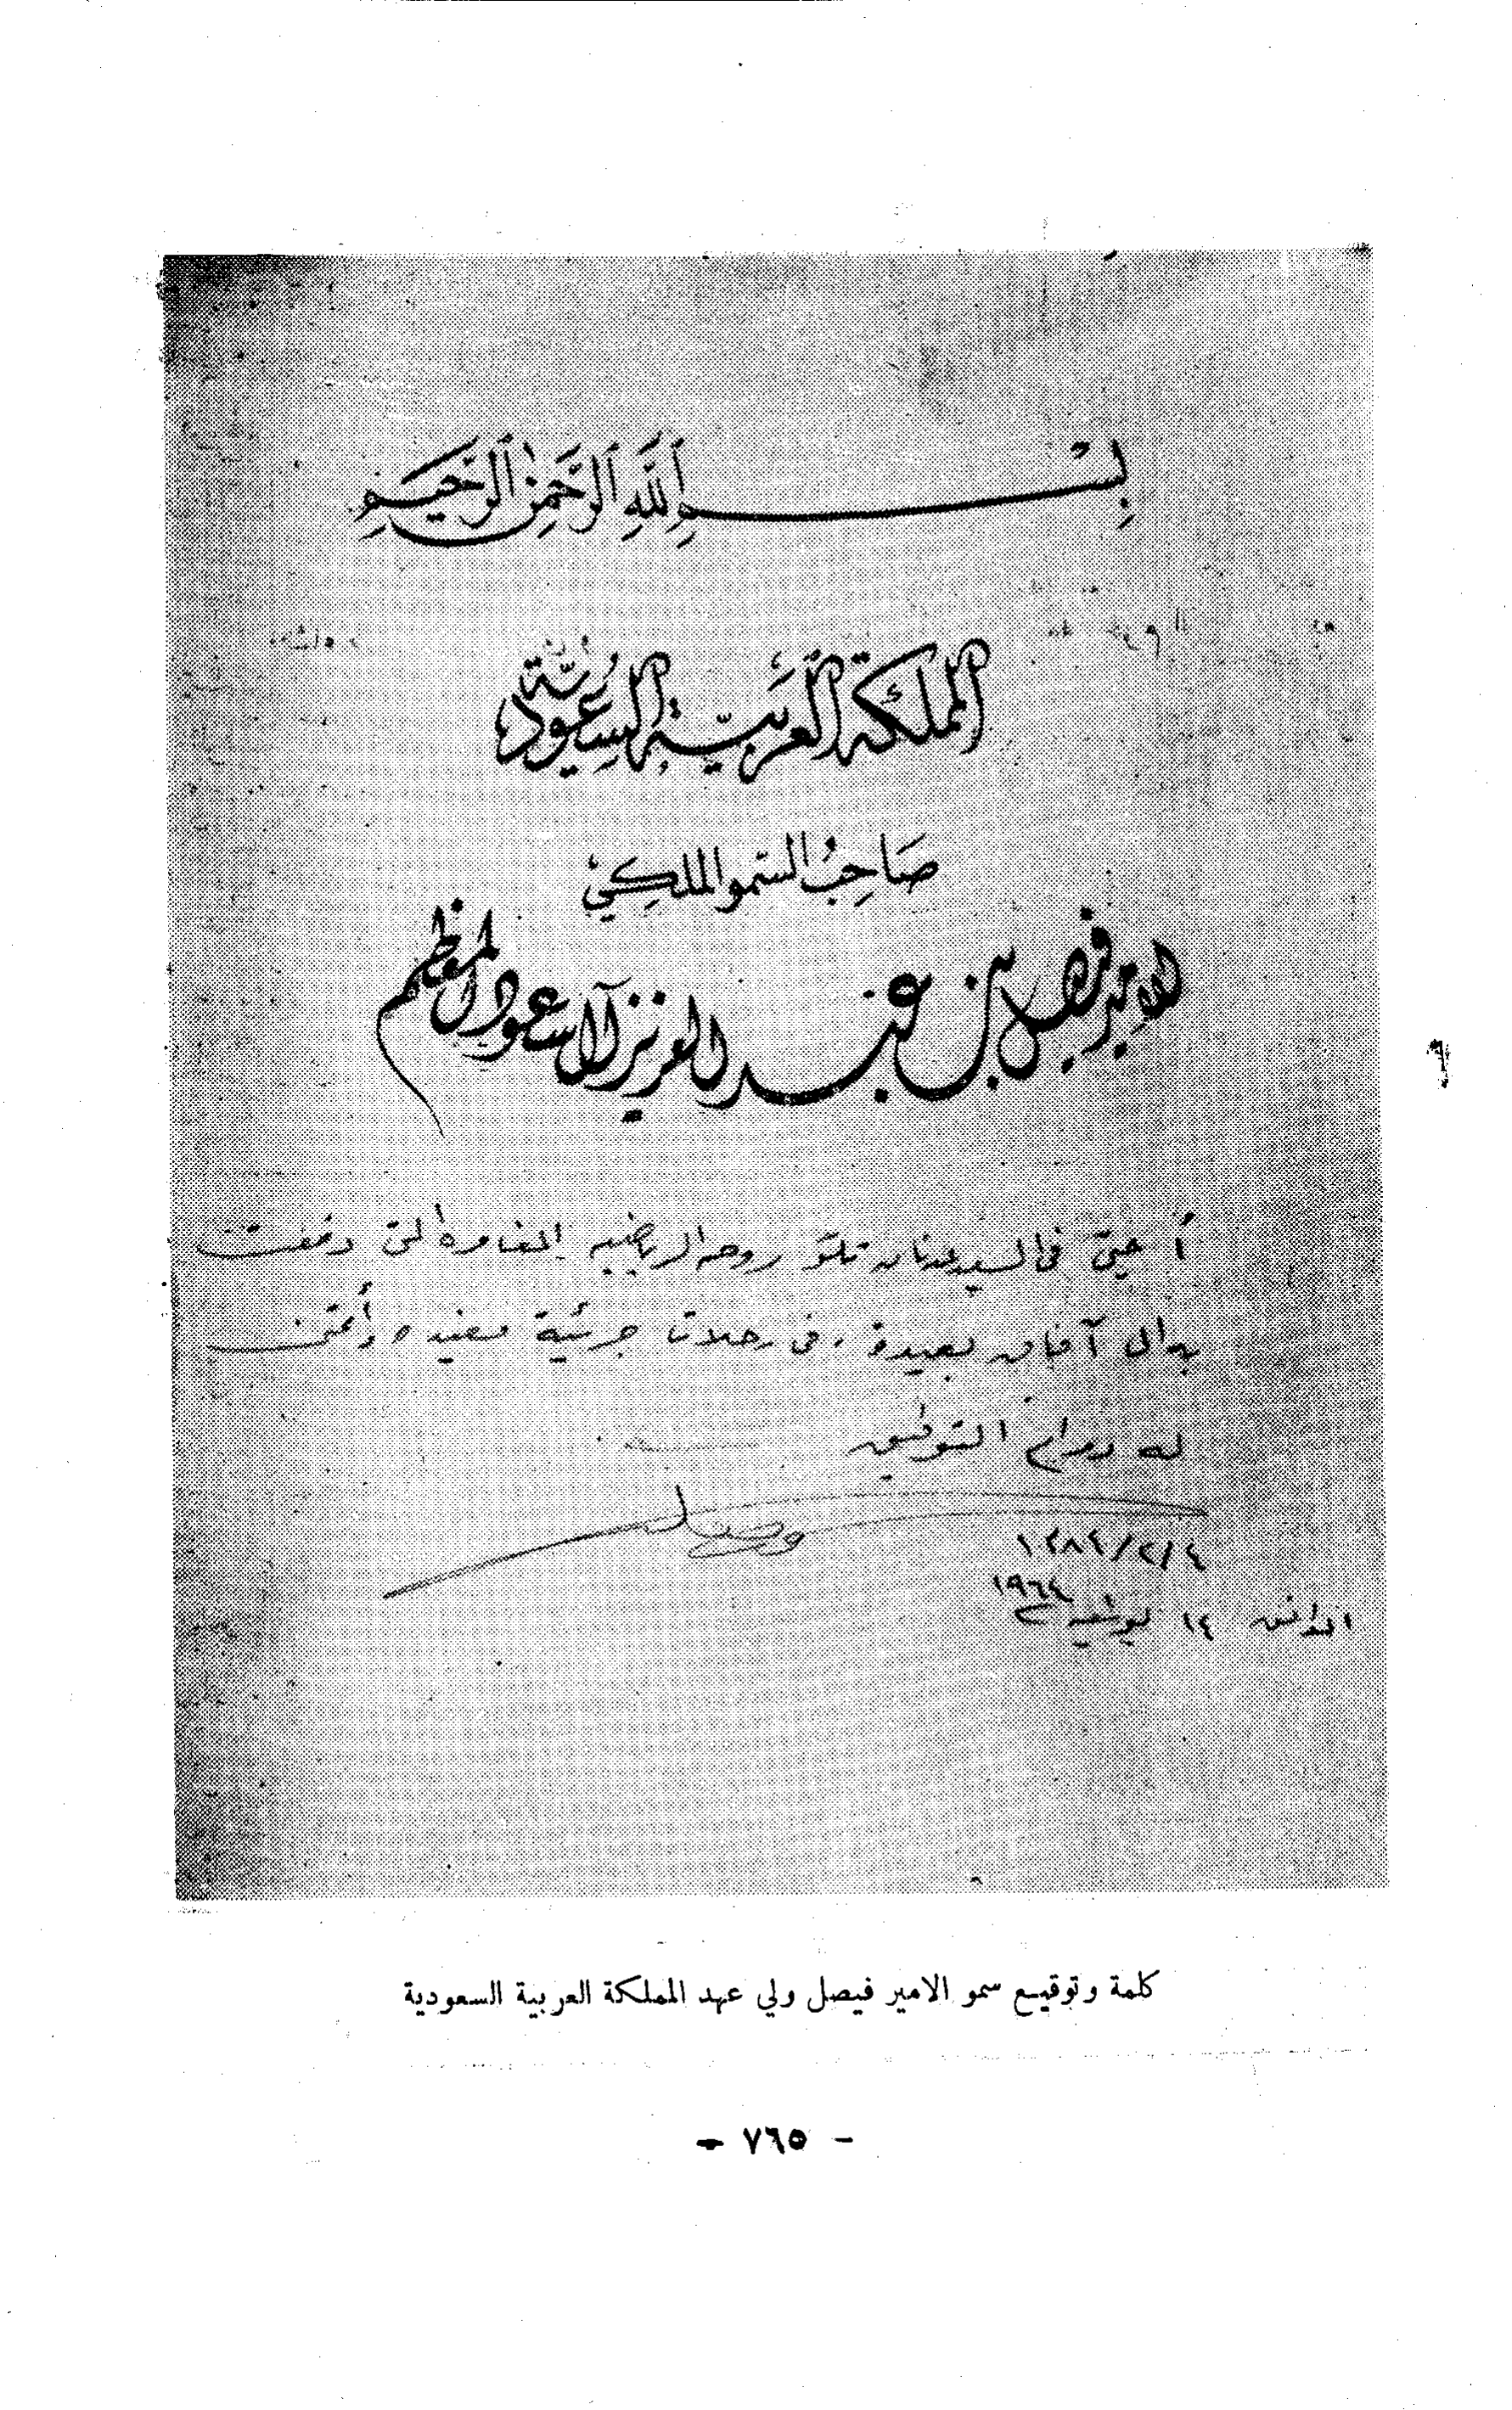 بِسْمِ اللَّهِ الرَّحْمَٰنِ الرَّحِيمِ
المملكة العربية السعودية
صاحب السمو الملكي
الامير فيصل بن عبد العزيز آل سعود المعظم
أحيي في السيد عدنان تللو روحه الرياضيه المغامرة التي دفعت
به الى آفاق بعيدة ، في رحلات جريئة مفيده وأتمنى
له دوام التوفيق
فيصل
١٣٨٤/٢/٤
الموافق ١٤ يونيه ١٩٦٤
كلمة وتوقيع سمو الامير فيصل ولي عهد المملكة العربية السعودية
- ٧٦٥ -